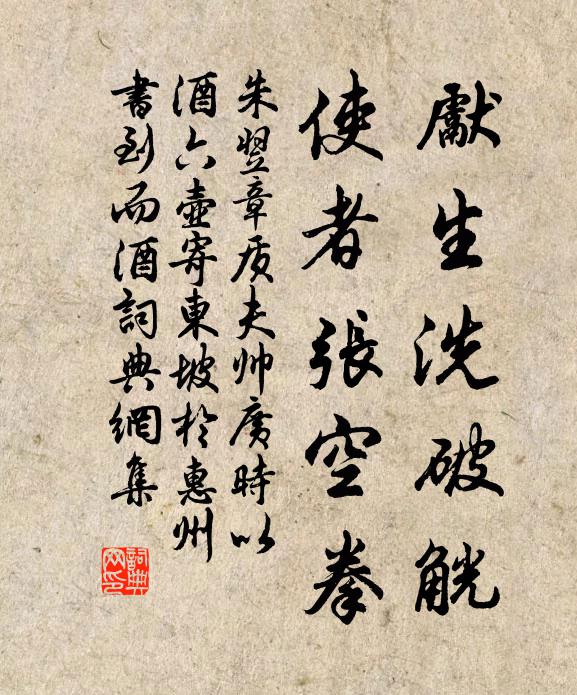 獻生洗破觥
使者張空拳
朱翌章质夫帅廣時以
酒六壺寄東坡於惠州
書到而酒詞典網集
詞典网印